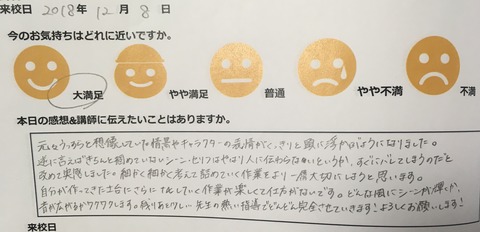 来校日 2018年 12月 8日
今のお気持ちはどれに近いですか。
大満足 やや満足 普通 やや不満 不満
本日の感想&講師に伝えたいことはありますか。
元々うっすらと想像していた情景やキャラクターの表情がくっきりと頭に浮かぶようになりました。
逆に言えばきちんと掴めていないシーン・セリフはやはり人に伝わらないというか、すぐにバレてしまうのだと
改めて実感しました。細かく細かく考えて詰めていく作業をより一層大切にしようと思います。
自分が作ってきた土台にさらに していく作業が楽しくて仕方がないです。どんな風にシーンが輝くか、
音が広がるかワクワクします。残りあと少し、先生の熱い指導でどんどん完全させていきます!よろしくお願いします!
来校日